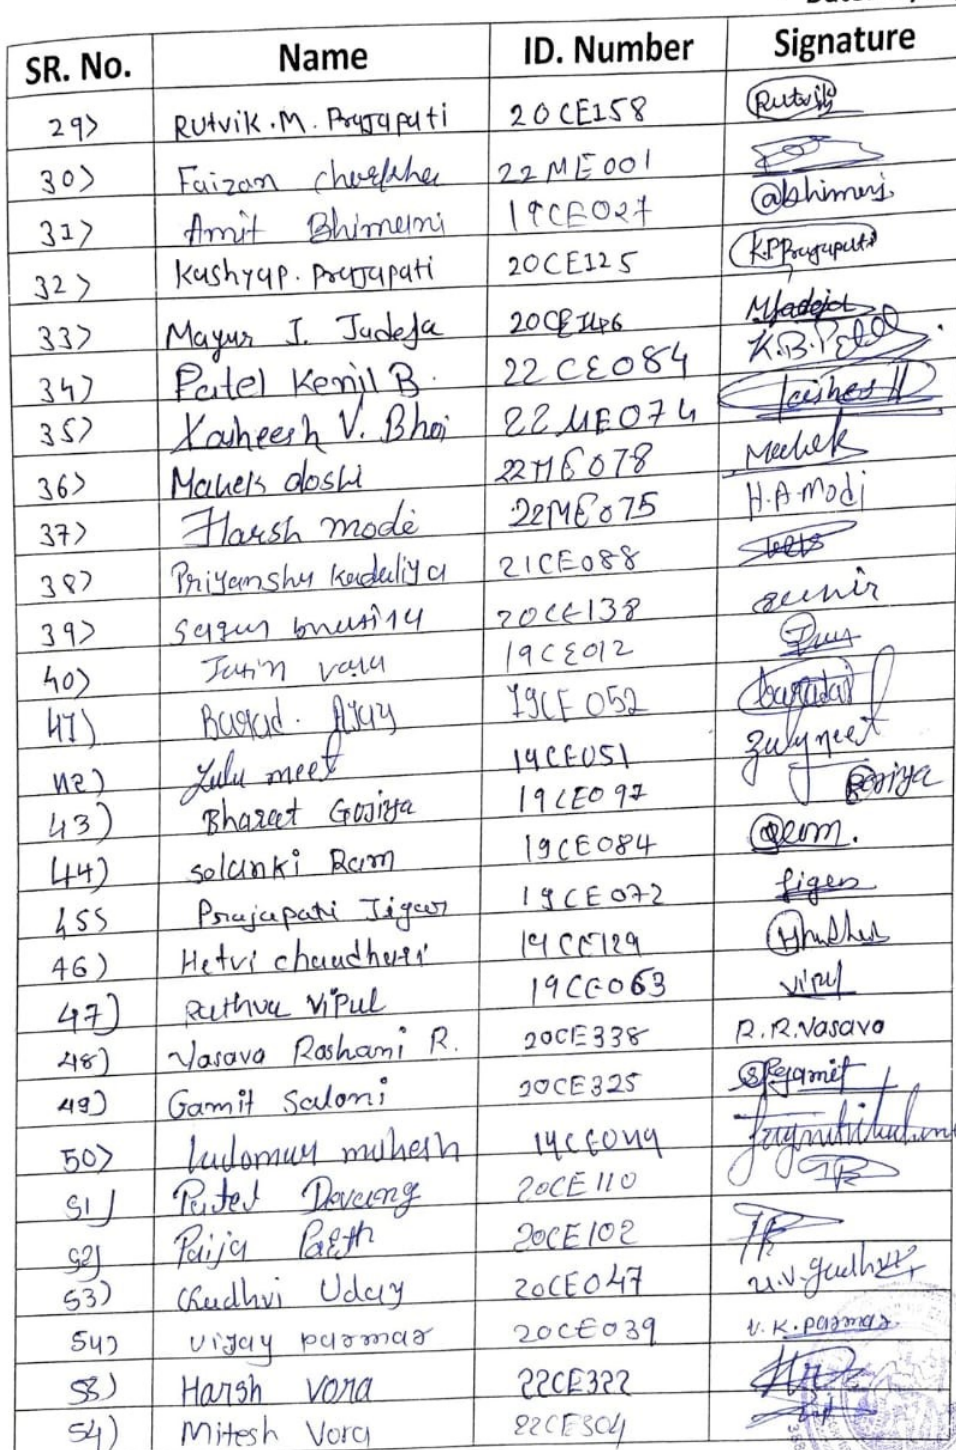 SR. No. Name ID. Number Signature
29) Rutvik.M. Prajapati 20CE158 Rutvik
30) Faizan 22ME001
31) Amit Bhimani 19CE027 @bhimani
32) Kashyap. Prajapati 20CE125 K.P.Prajapati
33) Mayur J. Jadeja 20CE146 MJadeja
34) Patel Kenil B. 22CE084 K.B.Patel
35) Yasheesh V. Bhoi 22ME074
36) Mahek doshi 22ME078 Mahek
37) Harsh modi 22ME075 H.A Modi
38) Priyanshu Kadaliya 21CE088
39) Sagar 20CE138
40) Jatin vala 19CE012
41) Barad. Ajay 19CE052
42) Zulu meet 19CE051 zulu meet
43) Bharat Gojiya 19CE097 Gojiya
44) Solanki Ram 19CE084 Ram.
455 Prajapati Jigar 19CE072 Jigar
46) Hetvi chaudhari 19CE129
47) Rathva Vipul 19CE063 Vipul
48) Vasava Rashami R. 20CE338 R.R.Vasava
49) Gamit Saloni 20CE325 SRgamit
50) mahesh 19CE049
51) Patel Devang 20CE110
52) Paija Parth 20CE102
53) Gadhvi Uday 20CE047 U.V.gadhvi
54) Vijay parmar 20CE039 V.K.parmar
53) Harsh Vora 22CE322
54) Mitesh Vora 22CE304